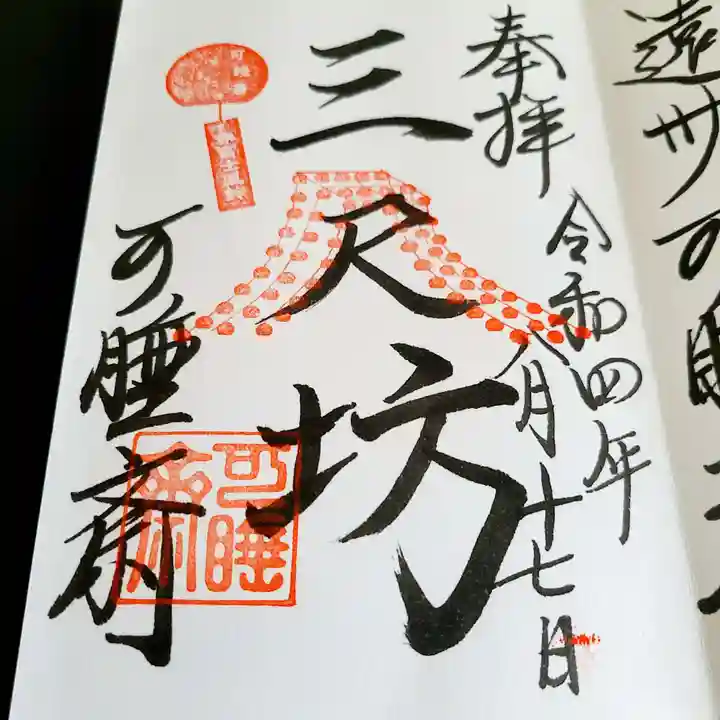 遠州可睡
奉拝
令和四年八月十七日
三尺坊
可睡斎
可睡
斎